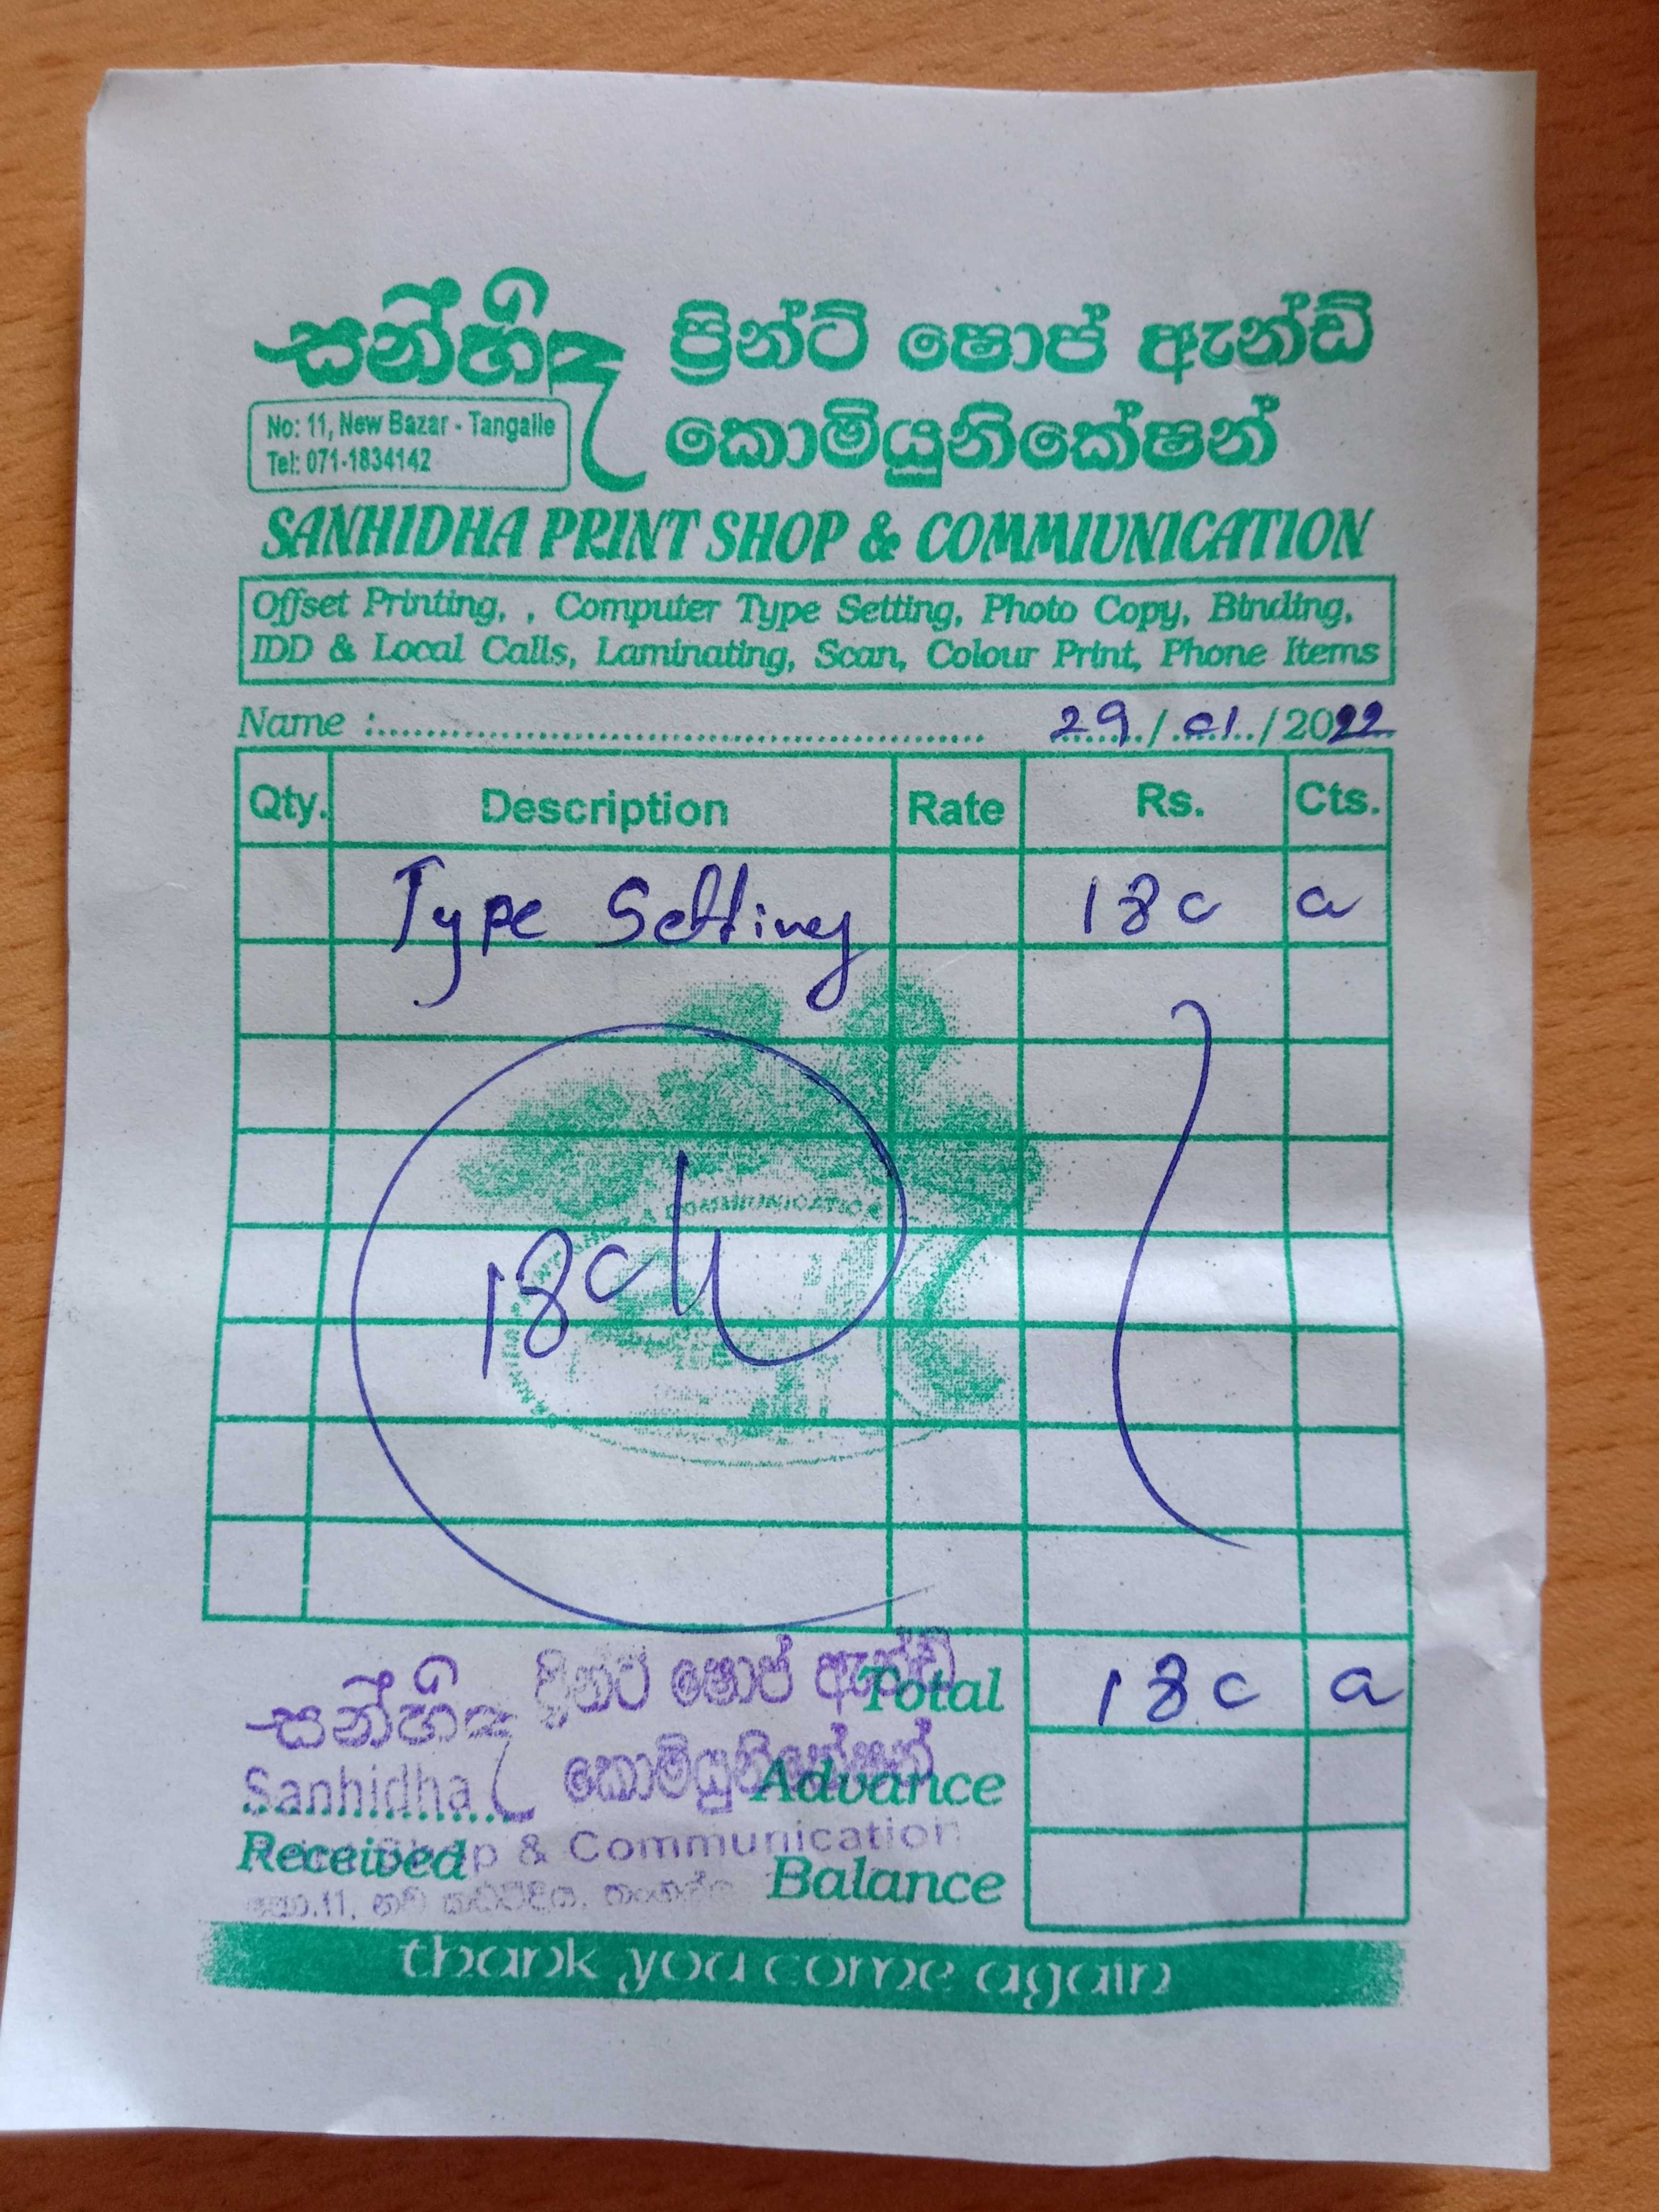 සන්හිඳ ප්‍රින්ට් ෂොප් ඇන්ඩ්
කොමියුනිකේෂන්
No: 11, New Bazar - Tangalle
Tel: 071-1834142
SANHIDHA PRINT SHOP & COMMIUNICATION
Offset Printing, , Computer Type Setting, Photo Copy, Binding,
IDD & Local Calls, Laminating, Scan, Colour Print, Phone Items
Name : 29/01/2022
Qty. Description Rate Rs. Cts.
Type Setting 180 00
180/-
සන්හිඳ ප්‍රින්ට් ෂොප් ඇන්ඩ්
Total 180 00
කොමියුනිකේෂන්
Sanhidha
Advance
Shop & Communication
Received
Balance
නො.11, නව කඩවීදිය, තංගල්ල
thank you come again